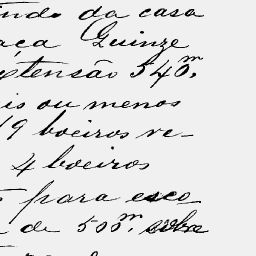 indo da casa
aça Quinze
extensão 540m,
is ou menos
19 boeiros re-
4 boeiros
para esco
de 500m, sobre